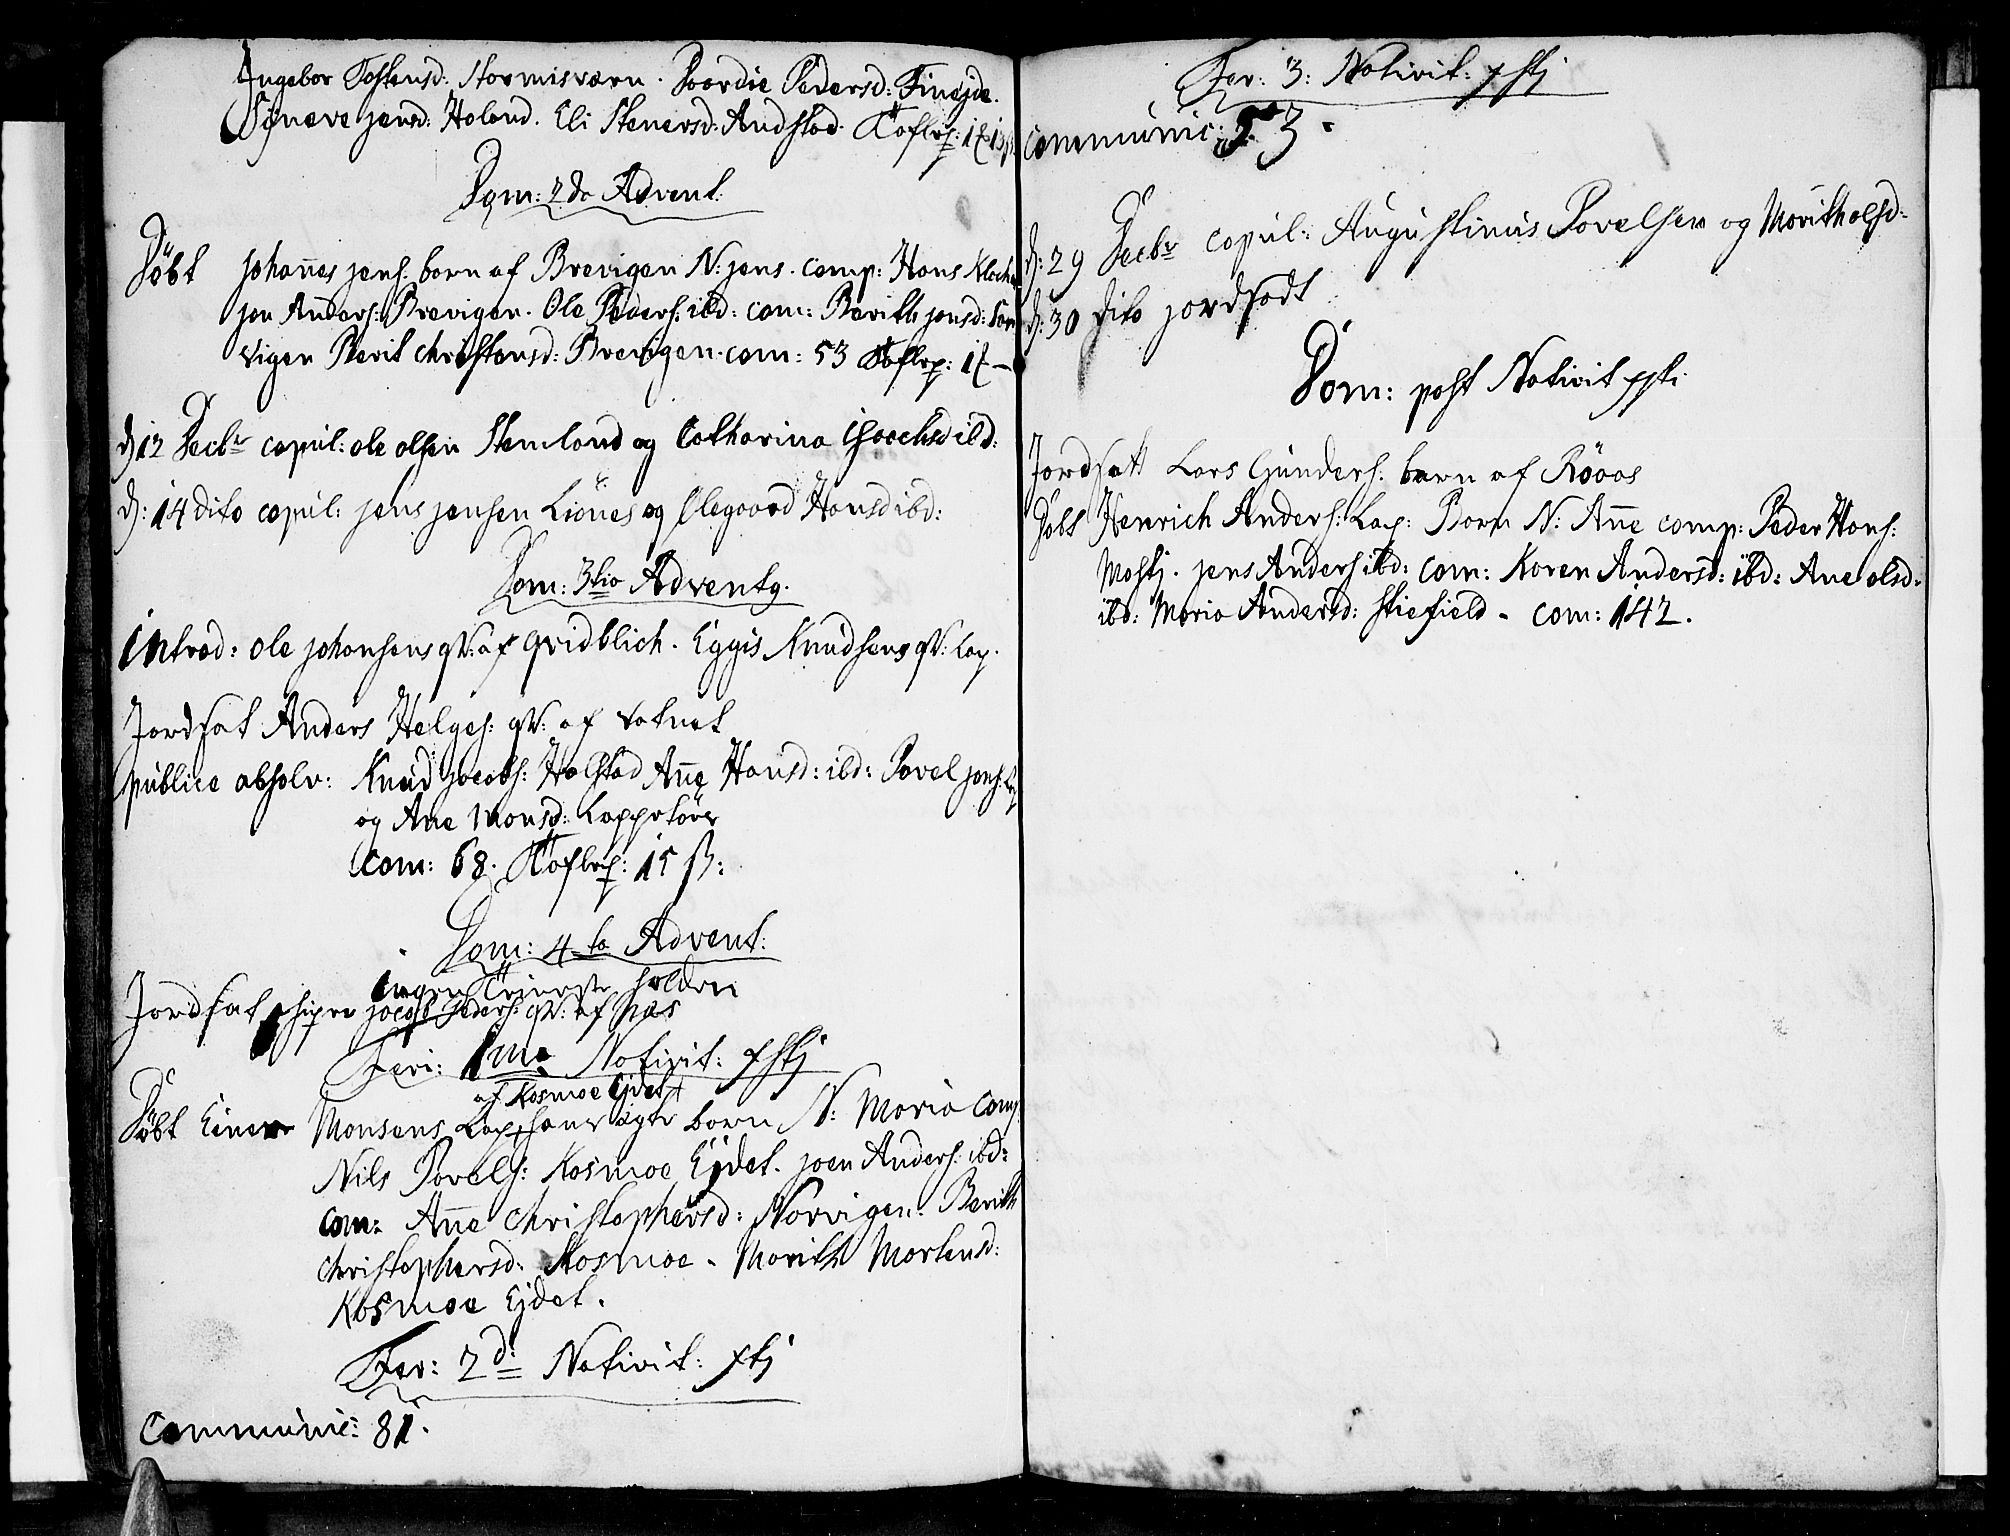 Ingebor Tostensd: Stormisværn. Baardie Pedersd: Finejde.
Synneve jensd: Holand. Eli Stenersd: Andstad. Taflep:
Dom: 2da Advent:
Døbt Johannes jens: barn af Brevigen N: jens. comp: Hans Klocker
jon Anders: Brevigen. Ole Peders: ibd: com: Berith jonsd:
vigen Berit Christensd: Brevigen. com: 53 Taflep:
d: 12 Decbr copul: ole olsen Stemland og Catharina ibd:
d: 14 dito copul: jens jensen Liønes og Olegaard Hansd ibd:
Dom: 3tio Advent9.
introd: ole johansens qv: af qvidblich. Eggis Knudsens qv: Lap.
Jordfat Anders Helges: qv: af vatnet
publice absolv: Knud jacobs: Halstad Añe Hansd: ibd: Povel jons: Lap
og Ane Monsd: Lappetøes
com: 68. Taflep: 15 ß:
Dom: 4ta Advent:
ingen tieniste holden
Jordfat jacob Peders: qv: af Næs
Feri: 1ma Nativit: xstj
af Kosmoe Ejdet
Døbt Einer Monsens Lap, hans ægte barn N: Maria comp:
Nils Povels: Kosmoe Ejdet. joen Anders: ibd:
com: Añe Christophersd: Norvigen. Berith
Christophersd: Kosmoe. Marith Mortensd:
Kosmoe Ejdet.
Fer: 2d: Nativit: xstj
Communic: 81.
Fer: 3: Nativit: xstj
communic: 53.
d: 29 Decbr copul: Augustinus Povelsen og Marith olsd:
d: 30 dito jordfadt
Dom: post Nativit xsti.
Jordfatt Lars Gunders: barn af Røaas
Døbt Henrich Anders: Lap: Barn N: Añe comp: Peder Hans:
Mostj. jens Anders ibd: com: Karen Andersd: ibd: Ane olsd:
ibd: Maria Andersd: Stiefield. com: 142.